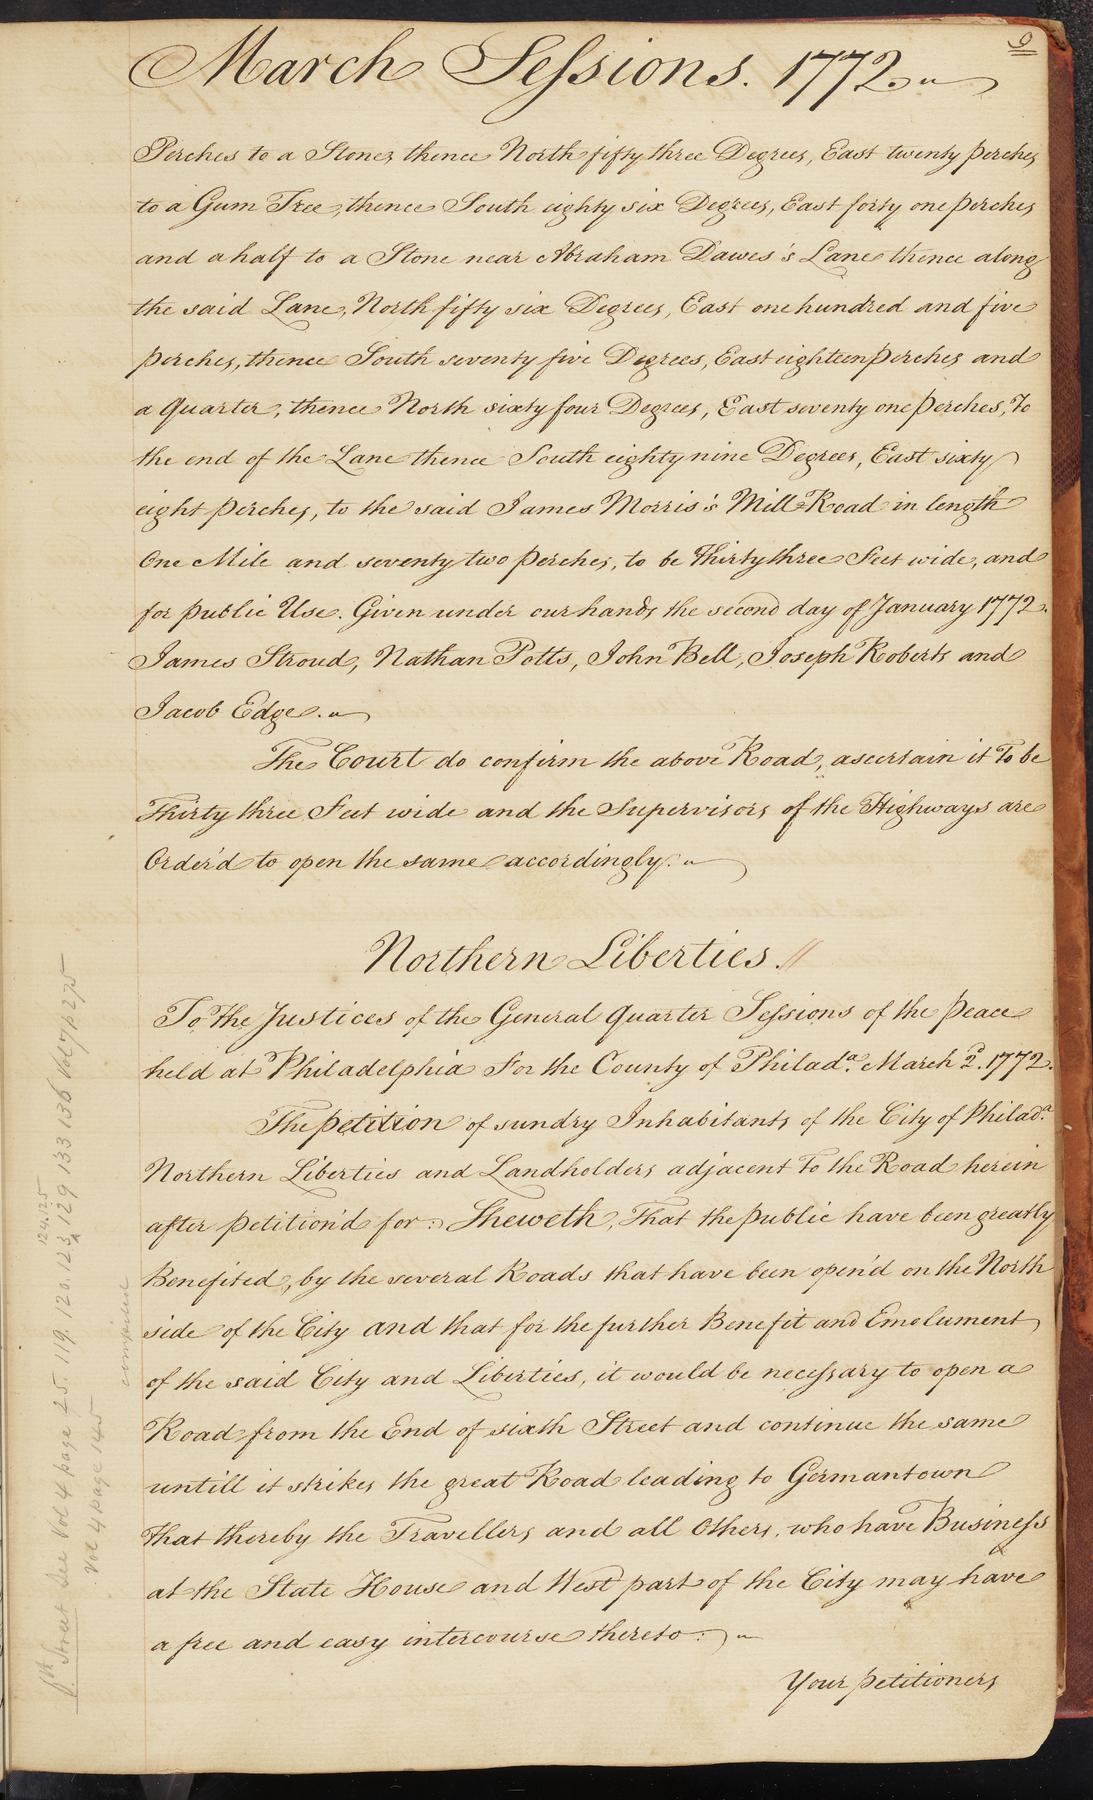 9
March Sessions. 1772.
Perches to a Stone, thence North fifty three Degrees, East twenty perches
to a Gum Tree, thence South eighty six Degrees, East forty one perches
and a half to a Stone near Abraham Dawes's Lane thence along
the said Lane, North fifty six Degrees, East one hundred and five
perches, thence South seventy five Degrees, East eighteen perches and
a quarter, thence North sixty four Degrees, East seventy one perches, To
the end of the Lane thence South eighty nine Degrees, East sixty
eight perches, to the said James Morris's Mill-Road in length
One Mile and seventy two perches, to be Thirty three Feet wide, and
for public Use. Given under our hands the second day of January 1772.
James Stroud, Nathan Potts, John Bell, Joseph Roberts and
Jacob Edge.
The Court do confirm the above Road, ascertain it To be
Thirty three Feet wide and the Supervisors of the Highways are
Order'd to open the same accordingly.
Northern Liberties.
To The Justices of the General quarter Sessions of the peace
held at Philadelphia For the County of Philada. March 2d. 1772.
The petition of sundry Inhabitants of the City of Philada.
Northern Liberties and Landholders adjacent To the Road herein
after petition'd for: Sheweth, That the public have been greatly
Benefited, by the several Roads that have been open'd on the North
side of the City and that for the further Benefit and Emolument
of the said City and Liberties, it would be necessary to open a
Road from the End of sixth Street and continue the same
untill it strikes the great Road leading to Germantown
That thereby the Travellers and all Others, who have Business
at the State House and West part of the City may have
a free and easy intercourse thereto:
Your petitioners
6th Street See Vol 4 page 25. 119. 120. 123 129 133 136 Vol 7 p 275
124.125
Vol 4 page 145